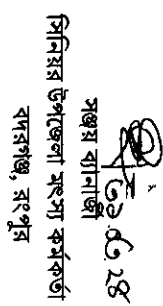 ৩০.৬.২৪
সঞ্জয় ব্যানার্জী
সিনিয়র উপজেলা মৎস্য কর্মকর্তা
বদরগঞ্জ, রংপুর